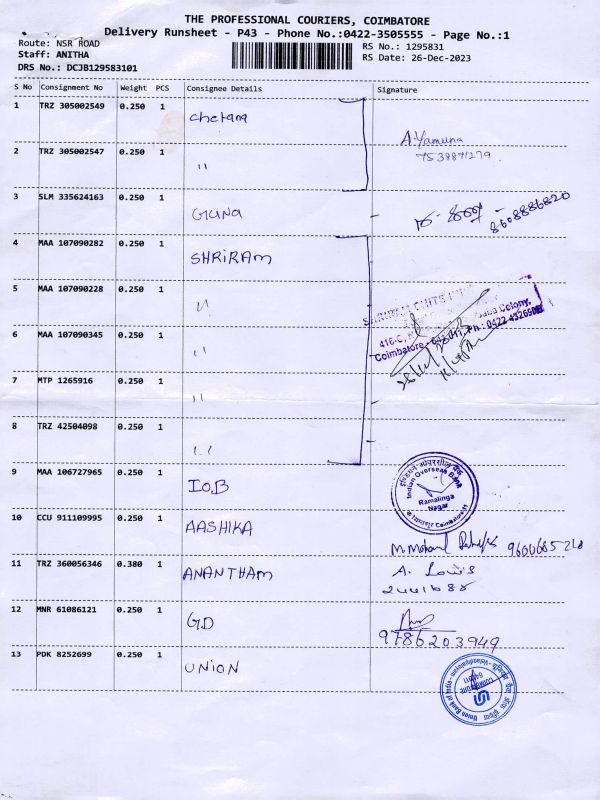 THE PROFESSIONAL COURIERS, COIMBATORE
Delivery Runsheet - P43 - Phone No.:0422-3505555 - Page No.:1
Route: NSR ROAD
RS No.: 1295831
Staff: ANITHA
RS Date: 26-Dec-2023
DRS No.: DCJB129583101
S No Consignment No Weight PCS Consignee Details Signature
1 TRZ 305002549 0.250 1 Chetana
A.Yamuna
7538871279
2 TRZ 305002547 0.250 1 "
3 SLM 335624163 0.250 1 GUNA
8608886820
4 MAA 107090282 0.250 1 SHRIRAM
5 MAA 107090228 0.250 1 "
SHRIRAM CHITS
416-C, Colony,
Coimbatore - 641 011. Ph : 0422 4326608
6 MAA 107090345 0.250 1 "
7 MTP 1265916 0.250 1 "
8 TRZ 42504098 0.250 1 "
9 MAA 106727965 0.250 1 IOB
Indian Overseas Bank
Ramalinga
Nagar
Coimbatore-11
10 CCU 911109995 0.250 1 AASHIKA
M. Mohamed
11 TRZ 360056346 0.380 1 ANANTHAM
A. Louis
2441688
12 MNR 61086121 0.250 1 GD
9786203949
13 PDK 8252699 0.250 1 UNION
Union Bank of India
COIMBATORE
641011